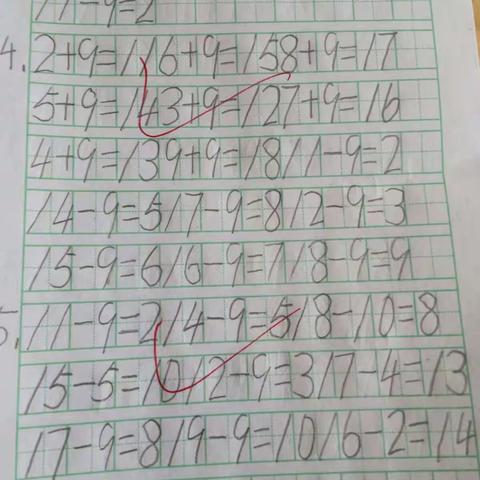 11-9=2
4. 2+9=11 6+9=15 8+9=17
5+9=14 3+9=12 7+9=16
4+9=13 9+9=18 11-9=2
14-9=5 17-9=8 12-9=3
15-9=6 16-9=7 18-9=9
5. 11-9=2 14-9=5 18-10=8
15-5=10 12-9=3 17-4=13
17-9=8 19-9=10 16-2=14